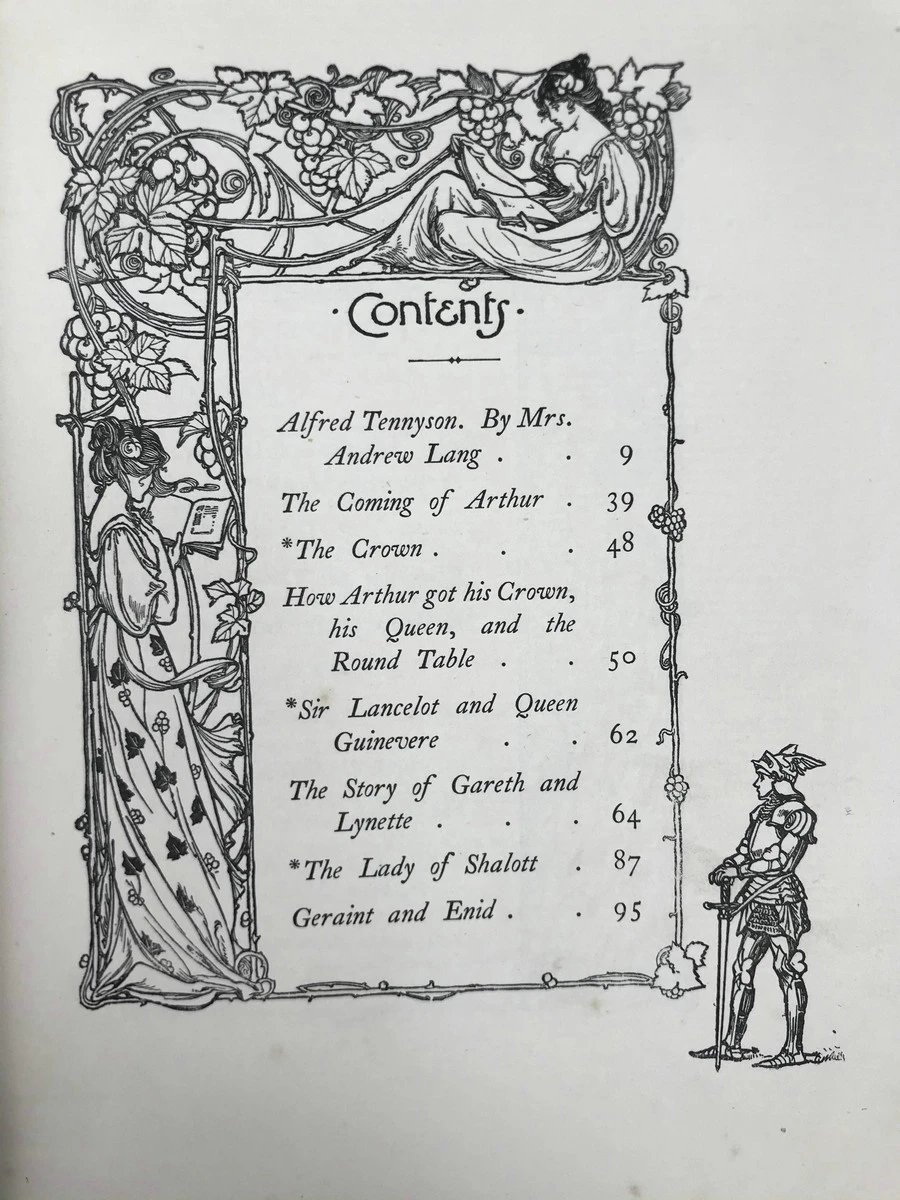 ·Contents·
Alfred Tennyson. By Mrs.
Andrew Lang . . 9
The Coming of Arthur . 39
*The Crown . . . 48
How Arthur got his Crown,
his Queen, and the
Round Table . . 50
*Sir Lancelot and Queen
Guinevere . . 62
The Story of Gareth and
Lynette . . . 64
*The Lady of Shalott . 87
Geraint and Enid . . 95